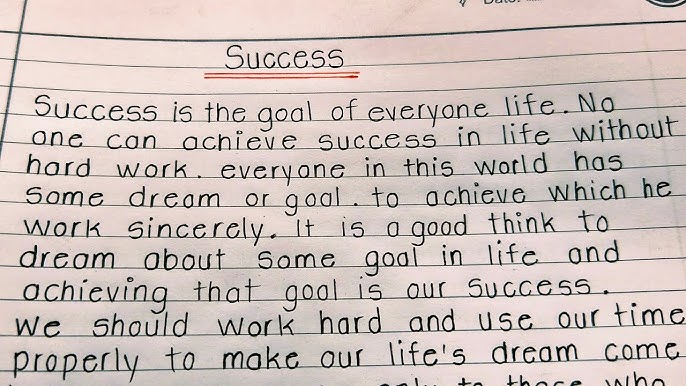 Date:
Success
Success is the goal of everyone life. No
one can achieve success in life without
hard work. everyone in this world has
some dream or goal. to achieve which he
work sincerely. It is a good think to
dream about some goal in life and
achieving that goal is our success.
We should work hard and use our time
properly to make our life's dream come
only to those who